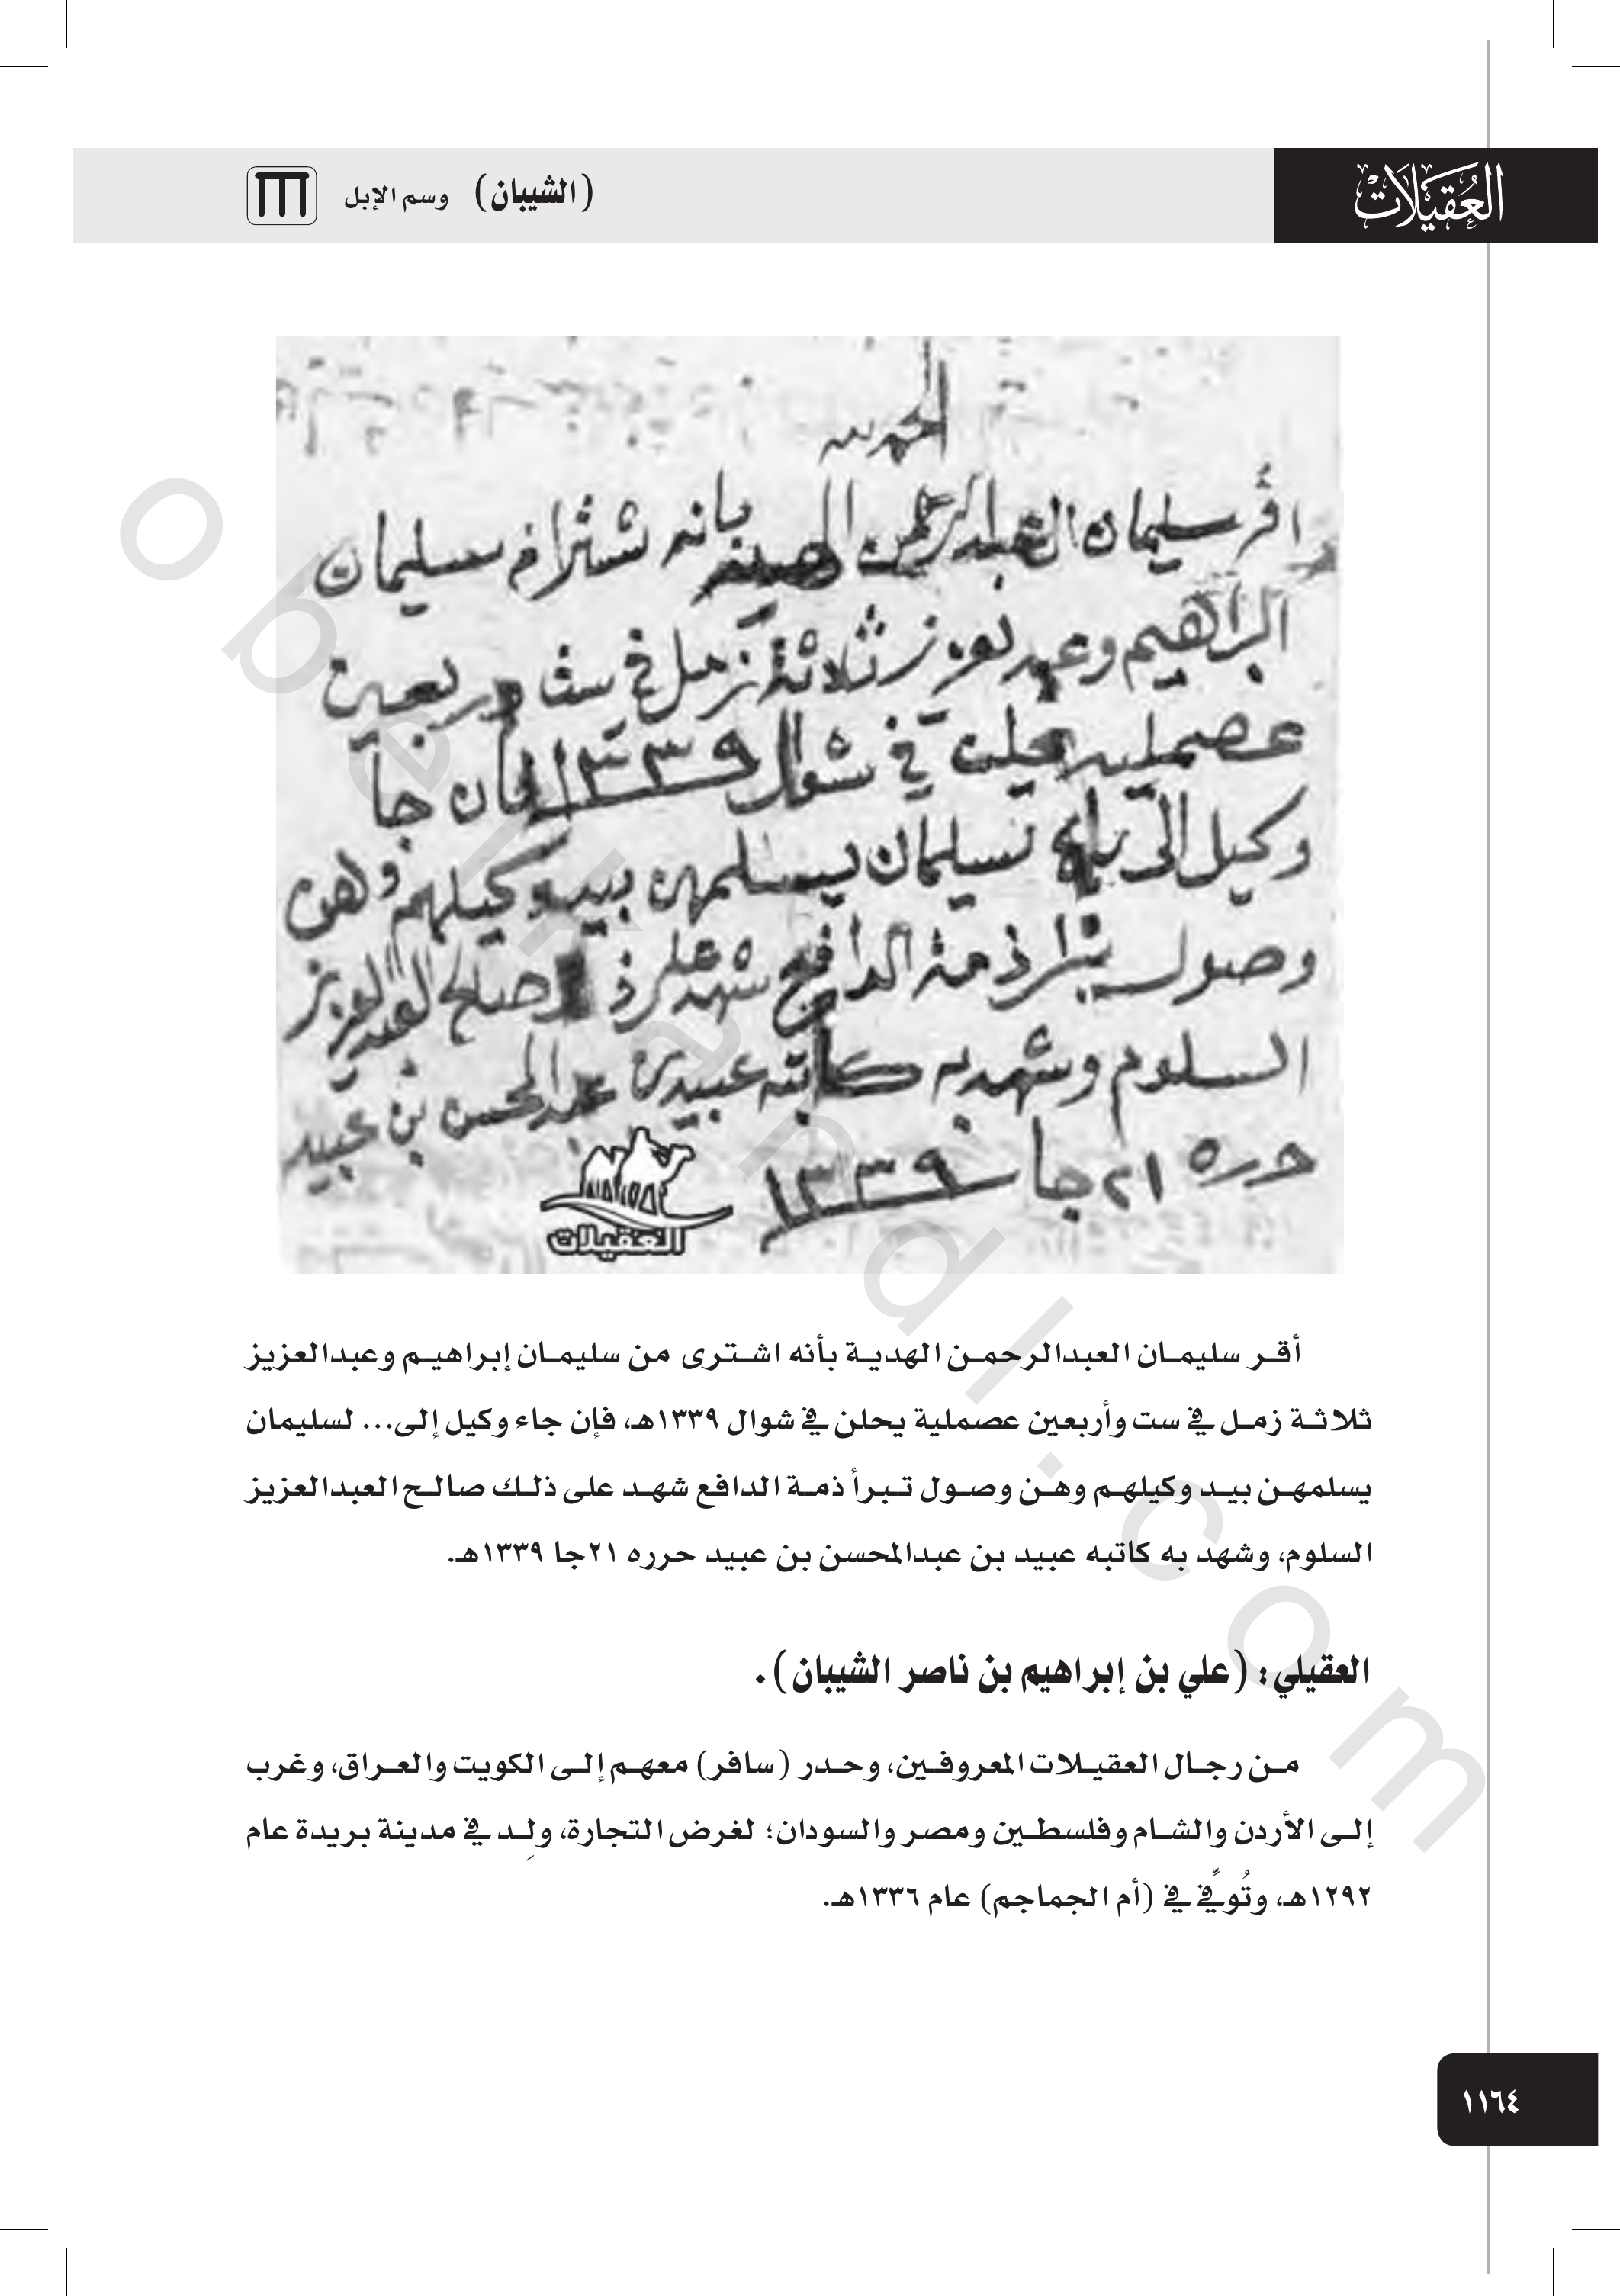 العُقيلات
(الشيبان) وسم الإبل
الحمد لله
اقر سليمان العبدالرحمن بانه شترا من سليمان
ابراهيم وعبدلعزيز ثلاثة زمل في ست وربعين
عصمليه يحلن في شوال ١٣٣٩ فان جا
وكيل الى لسليمان يسلمهن بيد وكيلهم وهن
وصول ذمة الدافع شهد على صالح العبدالعزيز
السلوم وشهد به كاتبه عبيد بن عبدالمحسن بن عبيد
حرره ٢١ جا ١٣٣٩
العقيلات
أقر سليمان العبدالرحمن الهدية بأنه اشترى من سليمان إبراهيم وعبدالعزيز
ثلاثة زمل في ست وأربعين عصملية يحلن في شوال ١٣٣٩هـ، فإن جاء وكيل إلى... لسليمان
يسلمهن بيد وكيلهم وهن وصول تبرأ ذمة الدافع شهد على ذلك صالح العبدالعزيز
السلوم، وشهد به كاتبه عبيد بن عبدالمحسن بن عبيد حرره ٢١جا ١٣٣٩هـ.
العقيلي: (علي بن إبراهيم بن ناصر الشيبان).
من رجال العقيلات المعروفين، وحدر (سافر) معهم إلى الكويت والعراق، وغرب
إلى الأردن والشام وفلسطين ومصر والسودان؛ لغرض التجارة، ولِد في مدينة بريدة عام
١٢٩٢هـ، وتُوفِّي في (أم الجماجم) عام ١٣٣٦هـ.
١١٦٤
obeikandl.com